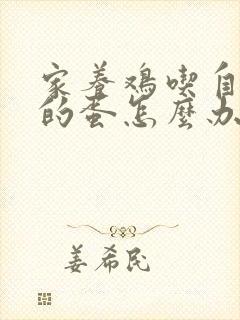 家養鴉喫自
的蛋怎麼办
姜希民